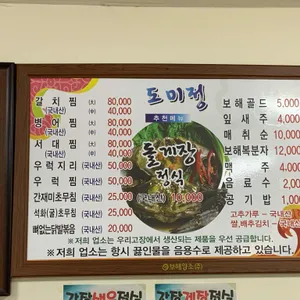 도미정
추천메뉴
돌게장
정식
(국내산) 10,000
갈치찜 (大) 80,000
(국내산) (中) 40,000
병어찜 (大) 80,000
(국내산) (中) 40,000
서대찜 (大) 80,000
(국내산) (中) 40,000
우럭지리 (국내산) 50,000
우럭찜 (국내산) 50,000
간재미초무침 (국내산) 25,000
석화(굴)초무침 (국내산) 25,000
뼈없는닭발볶음 (국내산) 20,000
보해골드 5,000
잎새주 4,000
매취순 10,000
보해복분자 12,000
맥주 4,000
음료수 2,000
공기밥 1,000
고추가루 - 국내산
쌀,배추김치 - 국내산
※ 저희 업소는 우리고장에서 생산되는 제품을 우선 공급합니다.
※ 저희 업소는 항시 끓인물을 음용수로 제공하고 있습니다.
보해양조(주)
간장새우정식
간장게장정식